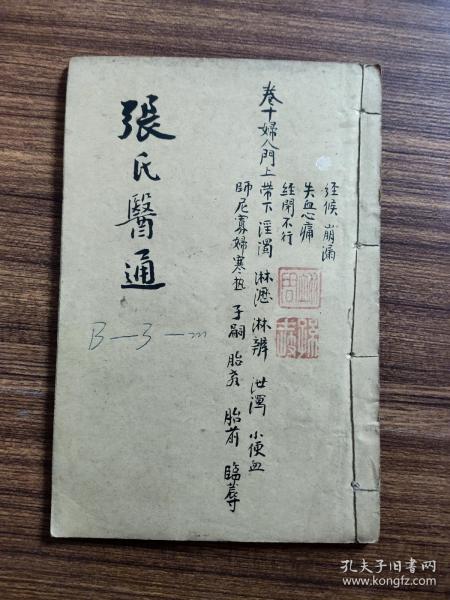 張氏醫通
卷十婦人門上
經候 崩漏
失血心痛
經閉不行
帶下 淫濁 淋瀝 淋辨 泄瀉 小便血
師尼寡婦寒热 子嗣 胎產 胎前 臨蓐
B-3-m
孔夫子旧书网
www.kongfz.com